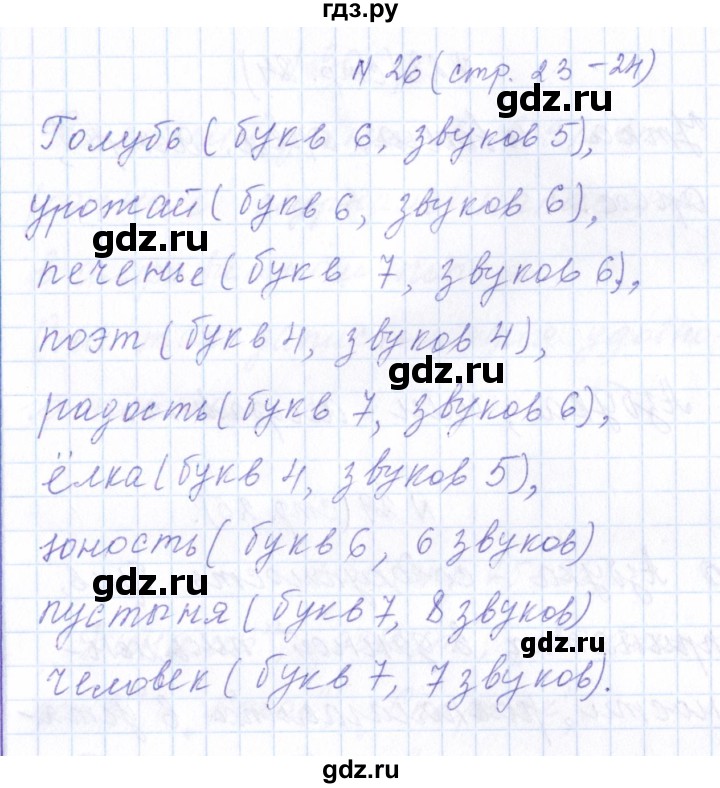 гдз.ру
N 26 (стр. 23-24)
gdz.ru
Голубь (букв 6, звуков 5),
урожай (букв 6, звуков 6),
gdz.ru
печенье (букв 7, звуков 6),
поэт (букв 4, звуков 4),
gdz.ru
радость (букв 7, звуков 6),
ёлка (букв 4, звуков 5),
юность (букв 6, 6 звуков)
gdz.ru
пустыня (букв 7, 8 звуков)
gdz.ru
человек (букв 7, 7 звуков).
gdz.ru